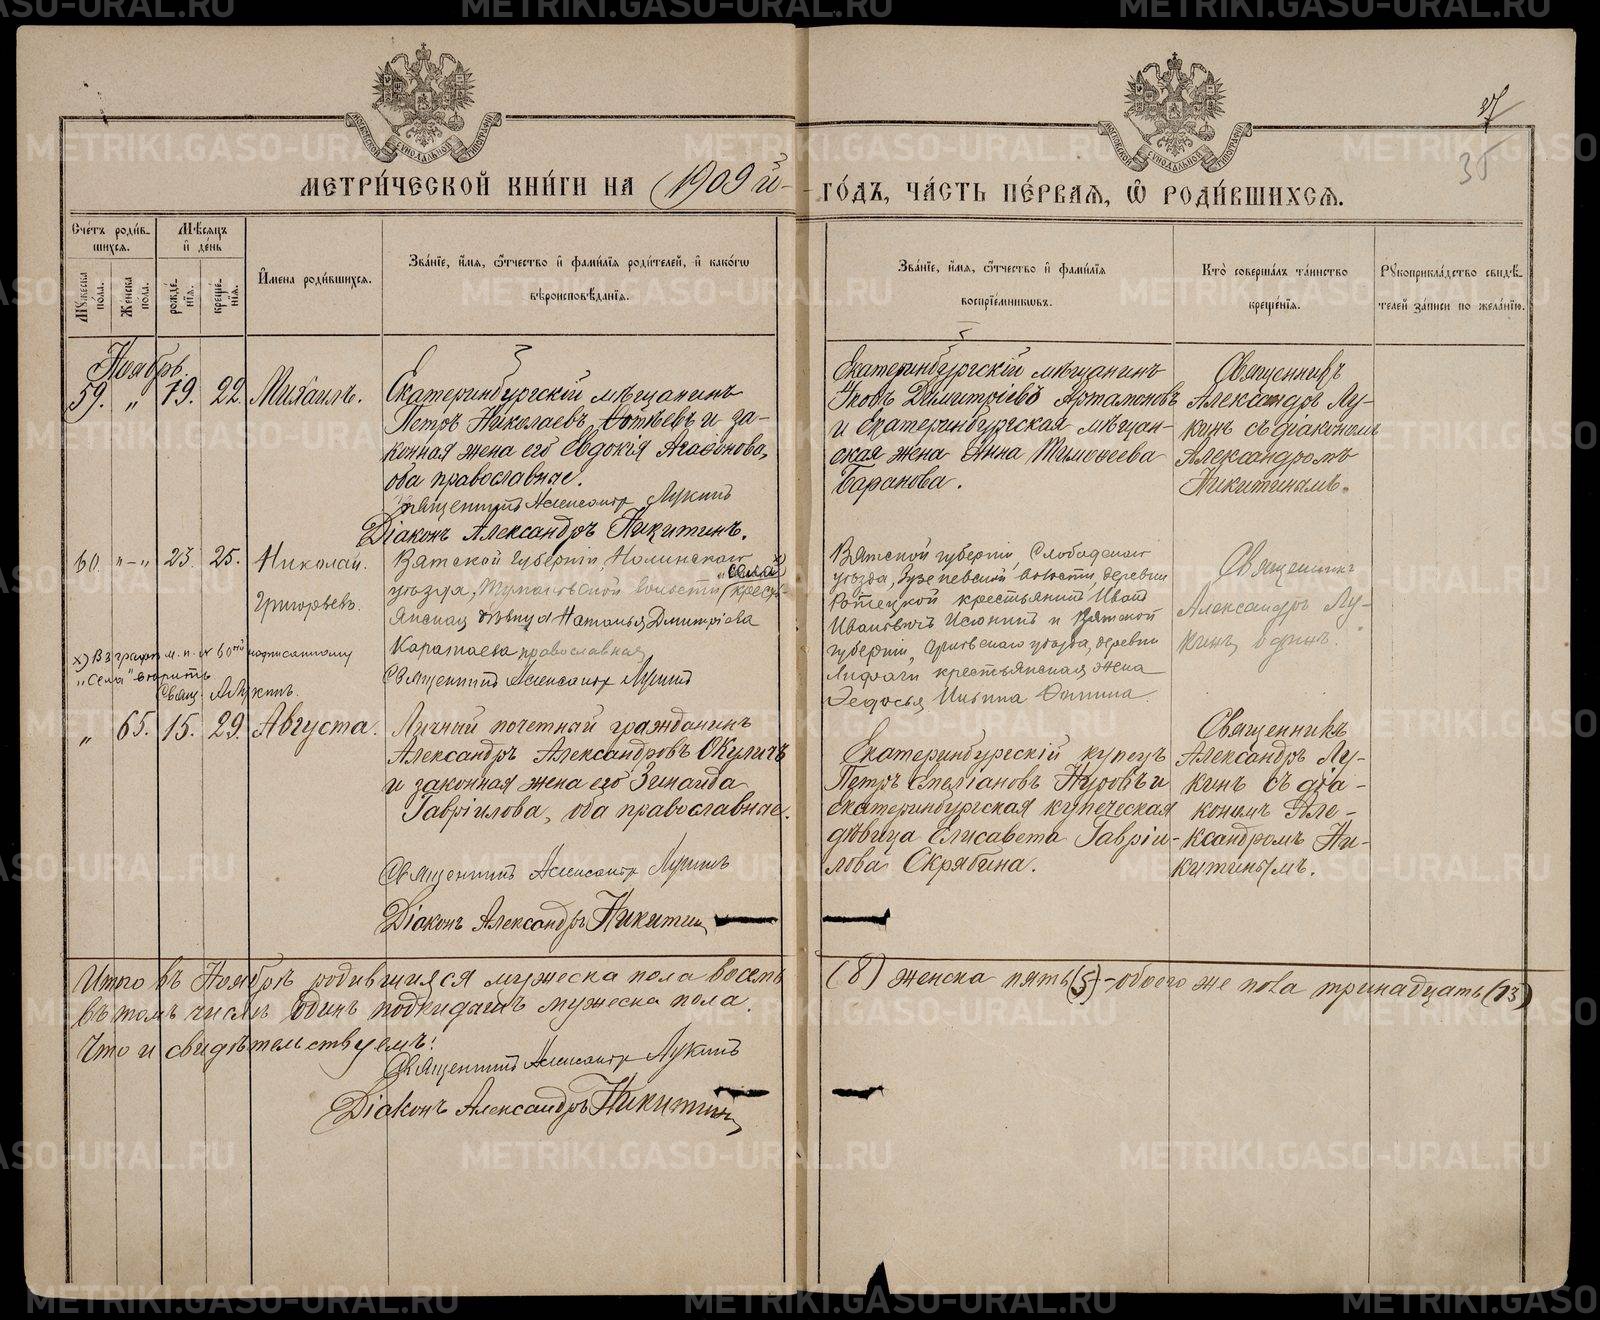 МЕТРИ́ЧЕСКОЙ КНИ́ГИ НА 1909 й
ГО́ДЪ, ЧА́СТЬ ПЕ́РВАЯ, Ѡ РОДИ́ВШИХСЯ.
27
35
Сче́тъ роди́в-
шихся.
Мѣ́сяцъ
и де́нь
Мꙋжеска
по́ла.
Же́нска
по́ла.
рожде́-
нїя.
креще́-
нїя.
И́мена роди́вшихся.
Зва́нїе, и́мя, ѻ́тчество и фами́лїя роди́телей, и како́гѡ
вѣроисповѣ́данїя.
Зва́нїе, и́мя, ѻ́тчество и фами́лїя
воспрїе́мникѡвъ.
Кто̀ соверша́лъ та́инство
креще́нїя.
Рꙋкоприкла́дство свидѣ́-
телей за́писи по жела́нїю.
Ноябрь.
59. „ 19. 22. Михаилъ.
Екатеринбургскій мѣщанинъ
Петръ Николаевъ и за-
конная жена его Евдокія Агаѳонова,
оба православные.
Священникъ Александръ Лукинъ
Діаконъ Александръ Никитинъ.
Екатеринбургскій мѣщанинъ
Яковъ Димитріевъ Артамоновъ
и Екатеринбургская мѣщан-
ская жена Анна Тимоѳеева
Баранова.
Священникъ
Александръ Лу-
кинъ съ діакономъ
Александромъ
Никитинымъ.
60. „-„ 23. 25. Николай.
Григорьевъ.
Вятской губерніи, Нолинскаго
уѣзда, волости, „села х) кресть-
янская дѣвица Наталья Дмитріева
Каратаева православная
Священникъ Александръ Лукинъ
х) Въ графѣ м. п. № 60й надписанному
„Села" вѣрить
Свящ. А. Лукинъ.
Вятской губерніи, Слободскаго
уѣзда, волости, деревни
крестьянинъ Иванъ
Ивановичъ Исюпинъ и Вятской
губерніи, уѣзда, деревни
крестьянская жена
Ѳедосья Ильина
Священникъ
Александръ Лу-
кинъ одинъ.
„ 65. 15. 29. Августа.
Личный почетный гражданинъ
Александръ Александровъ Окуличъ
и законная жена его Зинаида
Гавріилова, оба православные.
Священникъ Александръ Лукинъ
Діаконъ Александръ Никитинъ
Екатеринбургскій купецъ
Петръ Степановъ Нуровъ и
екатеринбургская купеческая
дѣвица Елисавета Гавріи-
лова Скрябина.
Священникъ
Александръ Лу-
кинъ съ діа-
кономъ Але-
ксандромъ Ни-
китинымъ.
Итого въ Ноябрѣ родившихся мужеска пола восемь (8) женска пять (5) - обоего же пола тринадцать (13)
въ томъ числѣ одинъ подкидышъ мужеска пола.
Что и свидѣтельствуемъ:
Священникъ Александръ Лукинъ
Діаконъ Александръ Никитинъ
METRIKI.GASO-URAL.RU